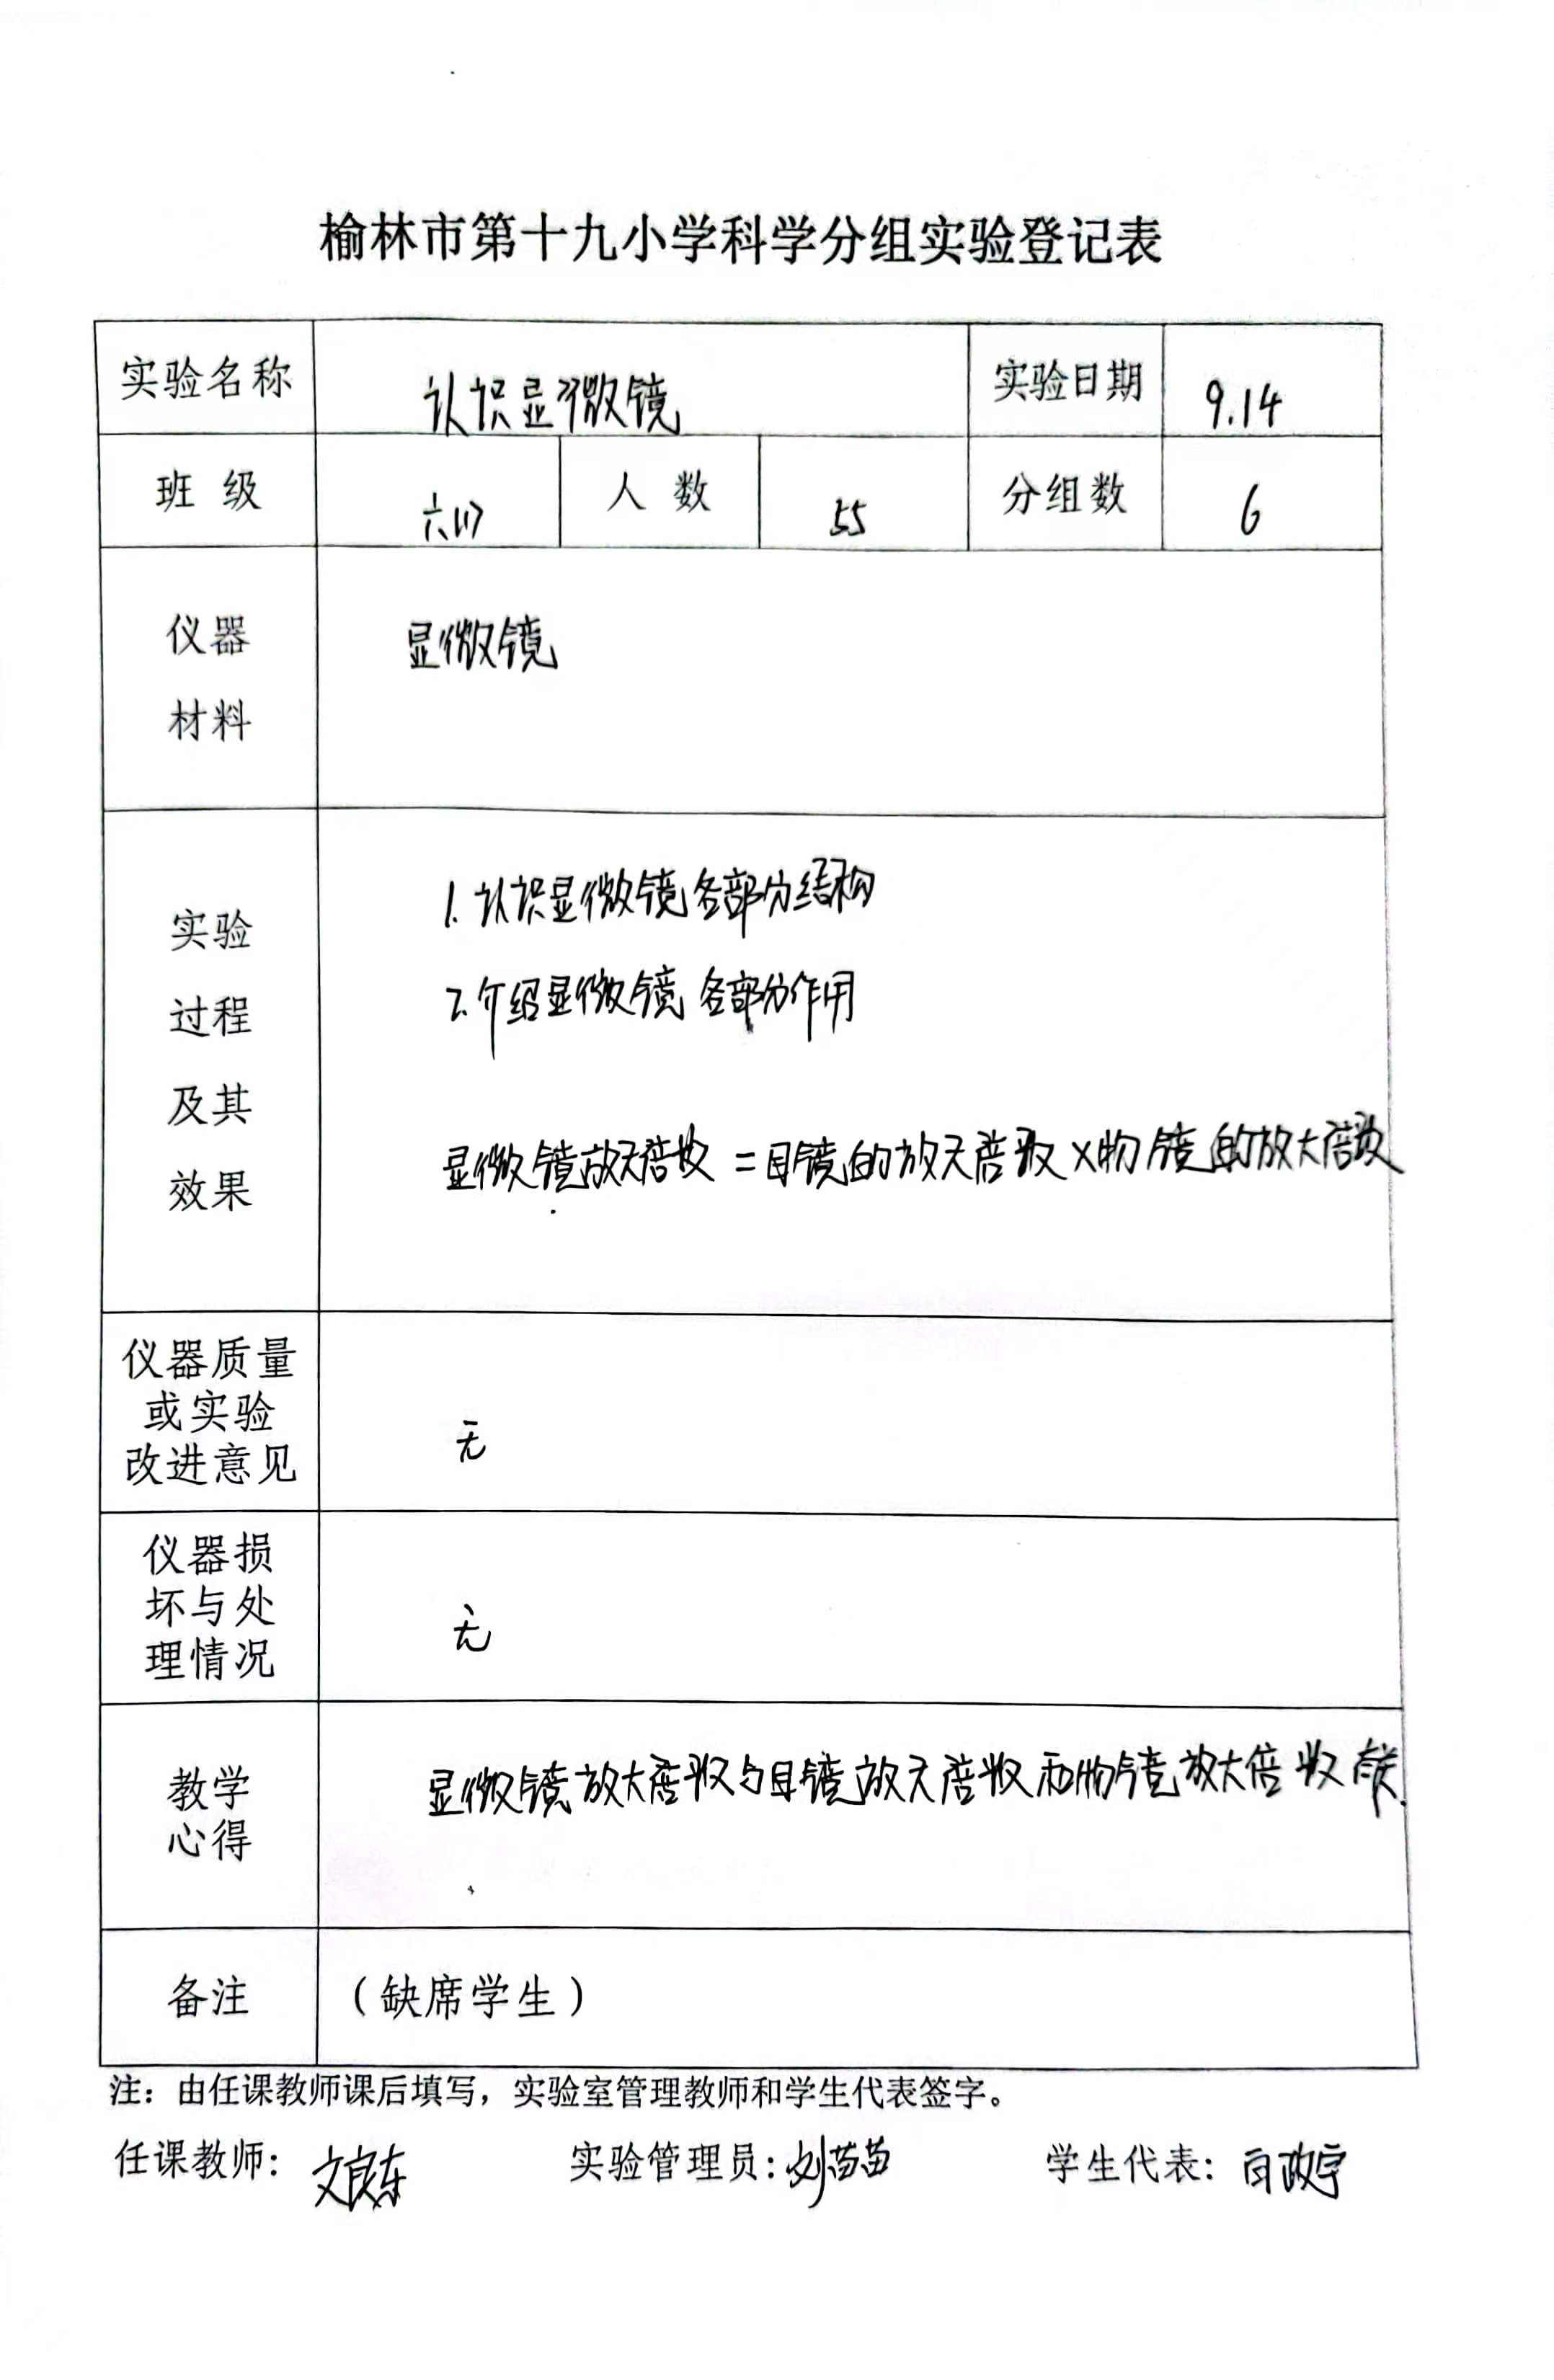 榆林市第十九小学科学分组实验登记表
实验名称 认识显微镜 实验日期 9.14
班 级 六(1) 人 数 55 分组数 6
仪器
材料
显微镜
实验
过程
及其
效果
1. 认识显微镜各部分结构
2. 介绍显微镜各部分作用
显微镜放大倍数=目镜的放大倍数×物镜的放大倍数
仪器质量
或实验
改进意见
无
仪器损
坏与处
理情况
无
教学
心得
显微镜放大倍数与目镜放大倍数和物镜放大倍数有关.
备注 (缺席学生)
注:由任课教师课后填写,实验室管理教师和学生代表签字。
任课教师: 文良东 实验管理员: 刘苗苗 学生代表: 白政宇